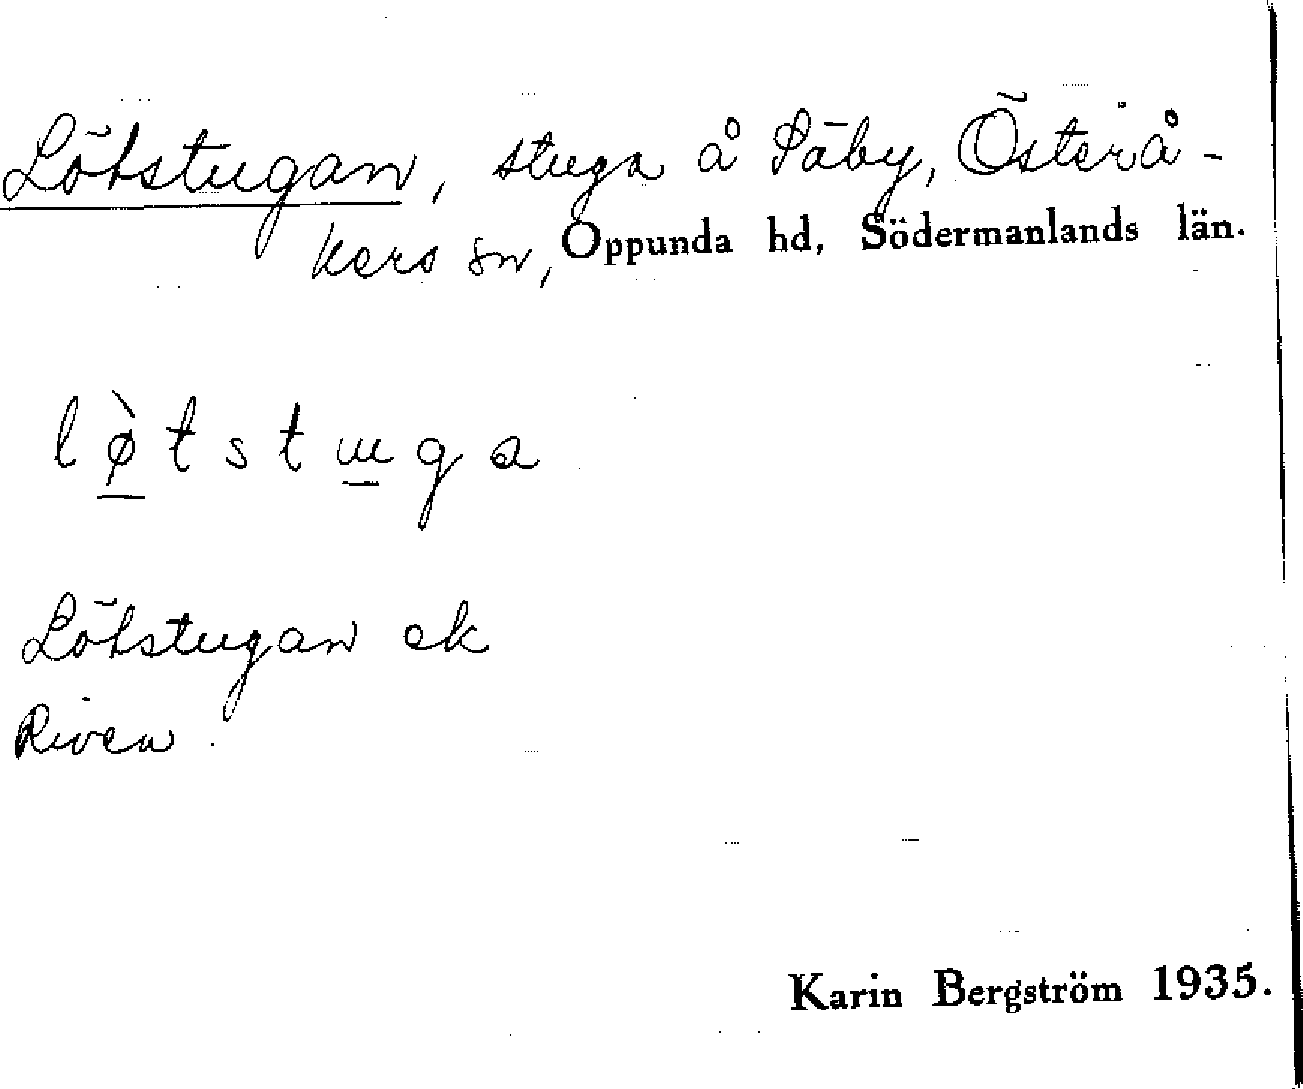 Lötstugan, stuga å Säby, Österå-
kers sn, Oppunda hd, Södermanlands län.
l ø̀ t s t ɯ g a
Lötstugan ek
Riven.
Karin Bergström 1935.